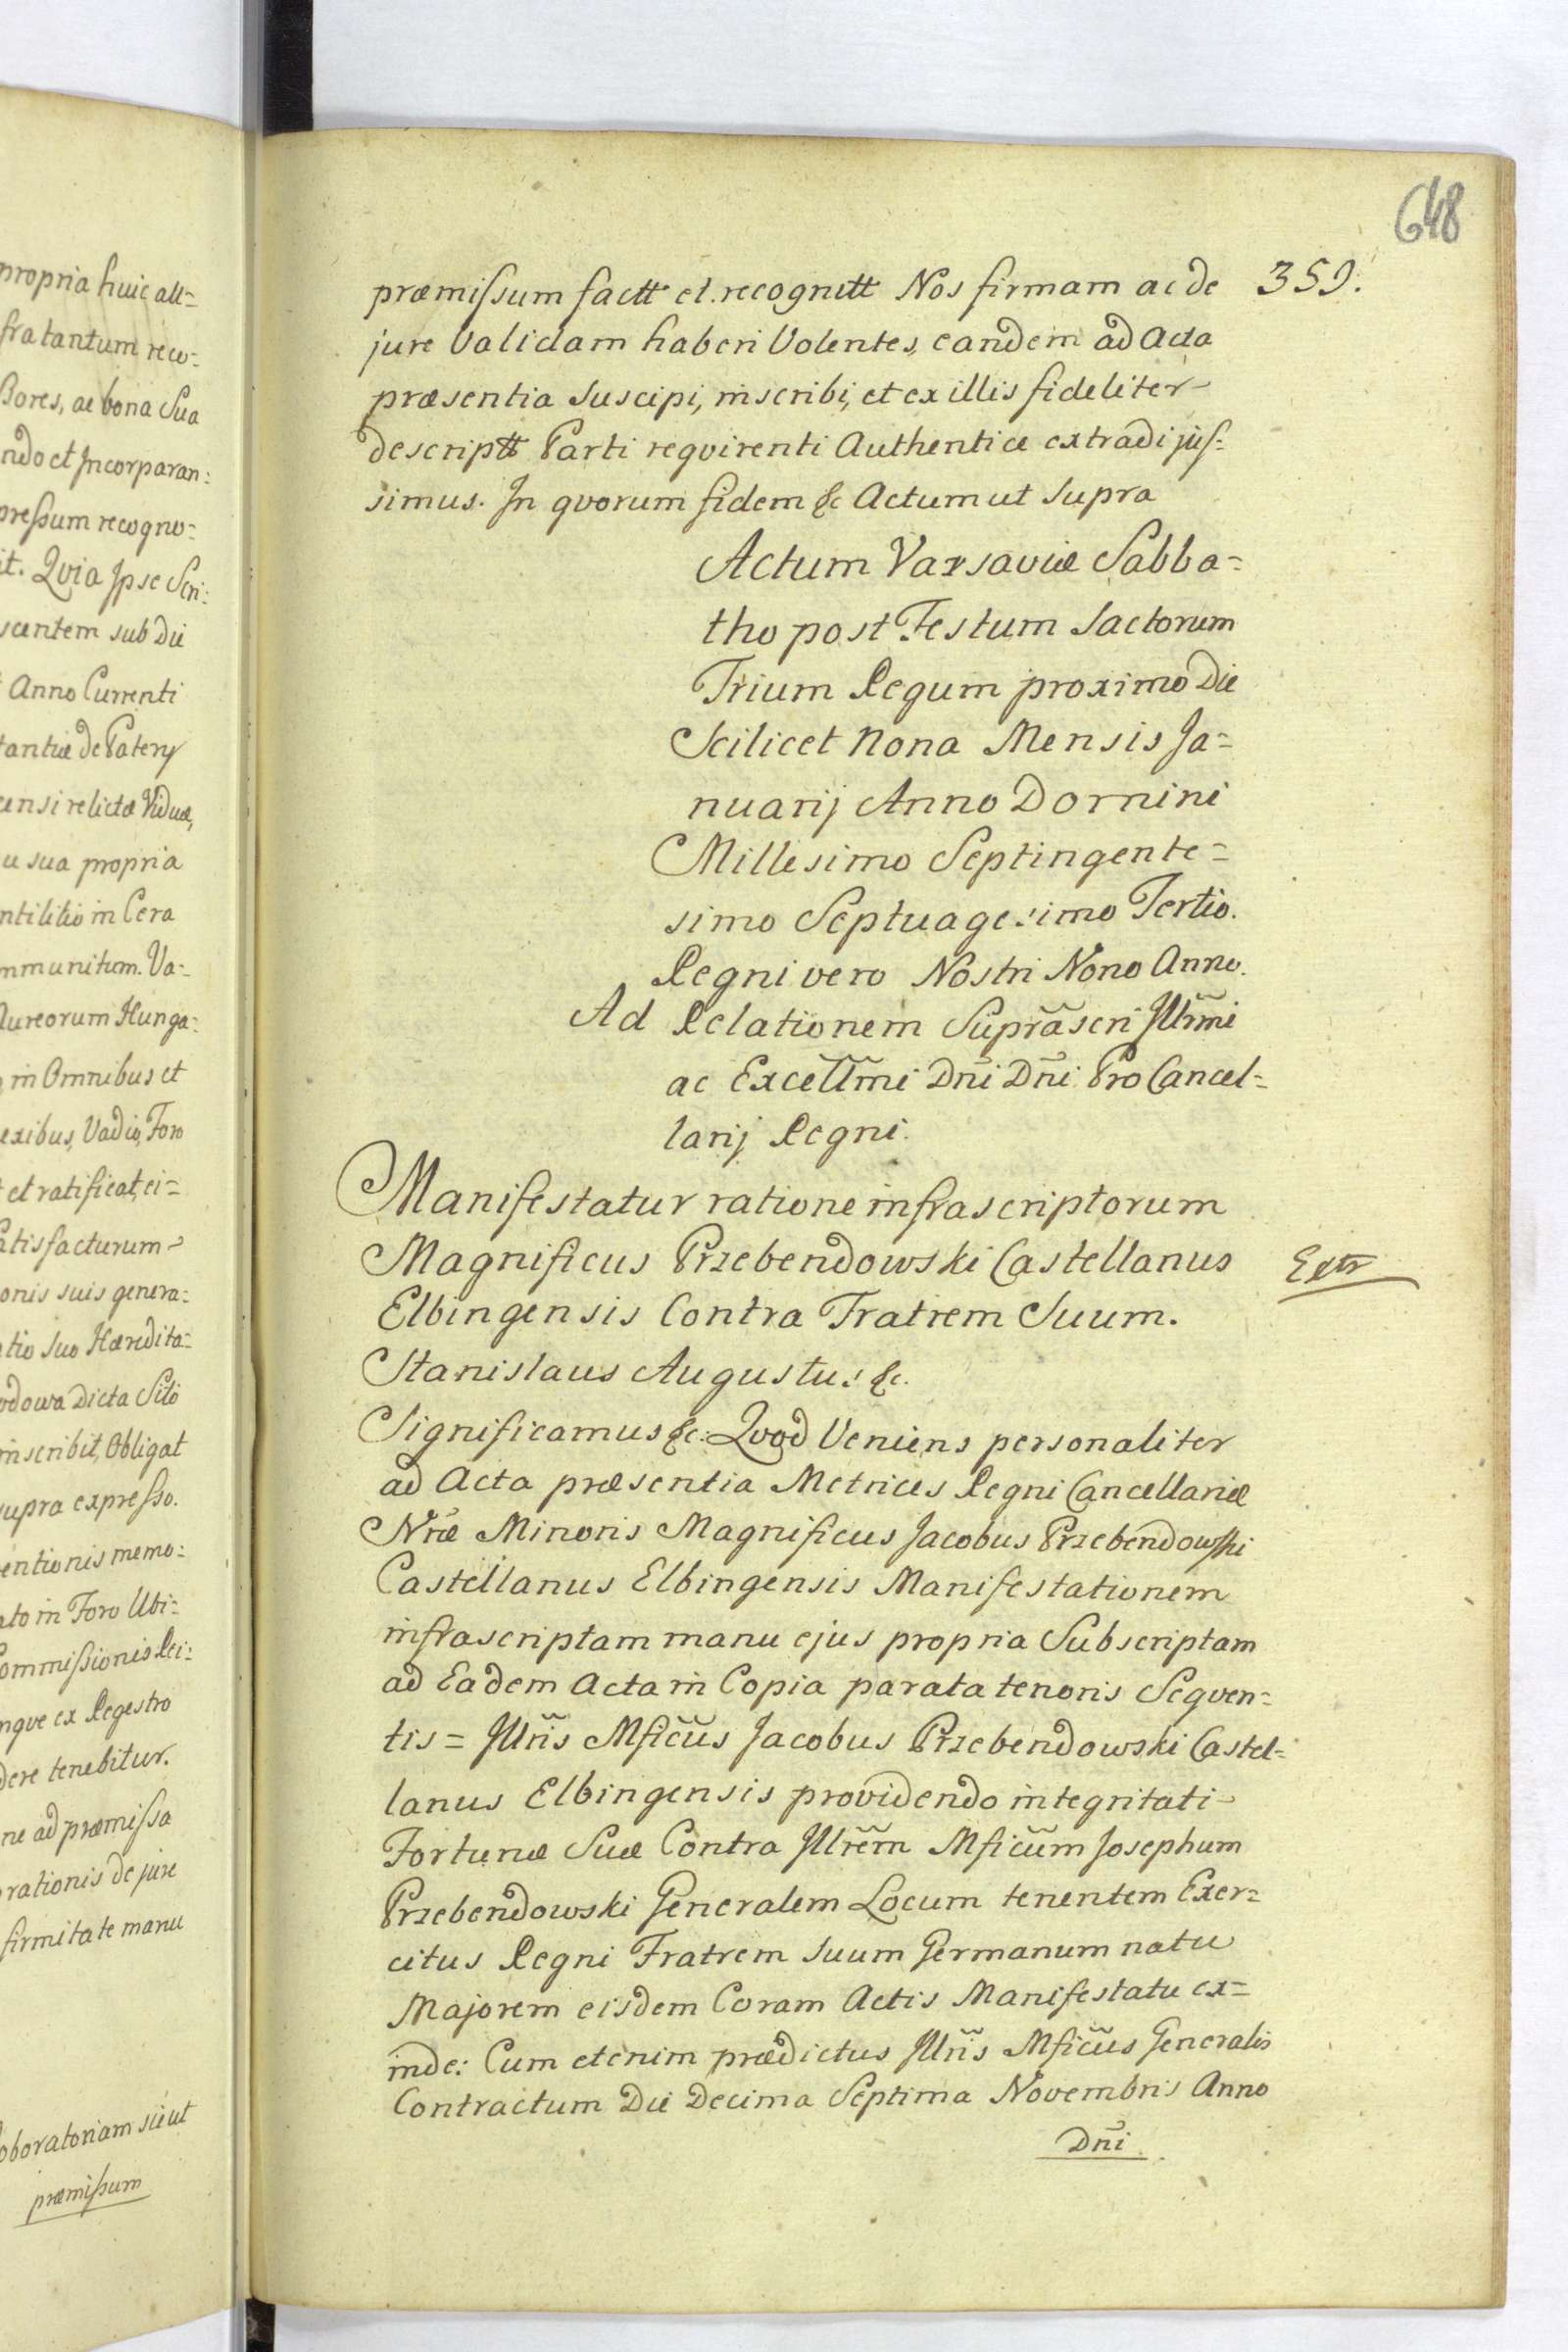 propria huic all=
fra tantum reco=
Bores, ac bona Sua
ndo et Incorporan:
pressum recogno=
it. Qvia Ipse Scri:
scentem sub Die
Anno Currenti
tantiæ de Patery
censi relictæ Viduæ,
u sua propria
ntilitio in Cera
mmunitum. Va=
Aureorum Hunga=
in Omnibus et
exibus, Vadio, Foro
et ratificat, ei=
Satisfacturum
onis suis genera:
tio Suo Hæredita=
odowa Dicta Sito
inscribit, Obligat
supra expresso.
entionis memo:
ato in Foro Ubi=
Commissionis Rei=
nqve ex Regestro
dere tenebitur.
ne ad præmissa
orationis de jure
firmitate manu
oboratoriam sicut
præmissum
648
359.
præmissum factt et recognitt Nos firmam ac de
jure Validam haberi Volentes, eandem ad Acta
præsentia Suscipi, inscribi, et ex illis fideliter
descriptt Parti reqvirenti Authentice extradi jus=
simus. In qvorum fidem &c Actum ut Supra
Actum Varsaviæ Sabba=
tho post Festum Sactorum
Trium Regum proximo Die
Scilicet Nona Mensis Ja=
nuarij Anno Domini
Millesimo Septingente=
simo Septuagesimo Tertio.
Regni vero Nostri Nono Anno.
Ad Relationem Suprascri Illrmi
ac Excellmi Dñi Dñi Pro Cancel=
larij Regni.
Manifestatur ratione infrascriptorum
Magnificus Przebendowski Castellanus
Elbingensis Contra Fratrem Suum.
Extr
Stanislaus Augustus &c.
Significamus &c: Qvod Veniens personaliter
ad Acta præsentia Metrices Regni Cancellariæ
Nræ Minoris Magnificus Jacobus Przebendowski
Castellanus Elbingensis Manifestationem
infrascriptam manu ejus propria Subscriptam
ad Eadem Acta in Copia parata tenoris Seqven=
tis = Illris Mficus Jacobus Przebendowski Castel=
lanus Elbingensis providendo integritati
Fortunæ Suæ Contra Illrem Mficum Josephum
Przebendowski Generalem Locum tenentem Exer=
citus Regni Fratrem Suum Germanum natu
Majorem eisdem Coram Actis Manifestatu ex=
inde: Cum etenim prædictus Illris Mficus Generalis
Contractum Die Decima Septima Novembris Anno
Dñi